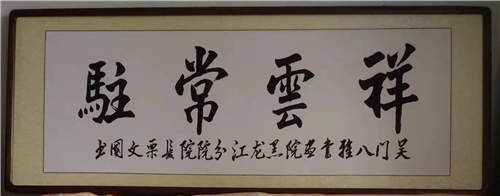 祥雲常駐
吴门八雅書画院黑龙江分院院長栗文国书